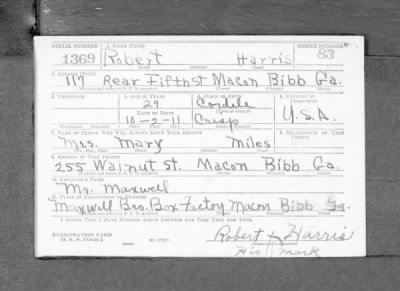 SERIAL NUMBER 1. NAME (Print) ORDER NUMBER
1369 Robert Harris 83
(First) (Middle) (Last)
2. ADDRESS (Print)
117 Rear Fifth St Macon Bibb Ga.
3. TELEPHONE 4. AGE IN YEARS 5. PLACE OF BIRTH 6. COUNTRY OF CITIZENSHIP
29 Cordele
DATE OF BIRTH
10-2-11 Crisp U.S.A.
7. NAME OF PERSON WHO WILL ALWAYS KNOW YOUR ADDRESS 8. RELATIONSHIP OF THAT PERSON
Mrs. Mary Miles
9. ADDRESS OF THAT PERSON
255 Walnut St. Macon Bibb Ga.
10. EMPLOYER'S NAME
Mr. Maxwell
11. PLACE OF EMPLOYMENT OR BUSINESS
Maxwell Bro. Box Factory Macon Bibb Ga.
I AFFIRM THAT I HAVE VERIFIED ABOVE ANSWERS AND THAT THEY ARE TRUE.
REGISTRATION CARD
D. S. S. Form 1
Robert x Harris
His mark